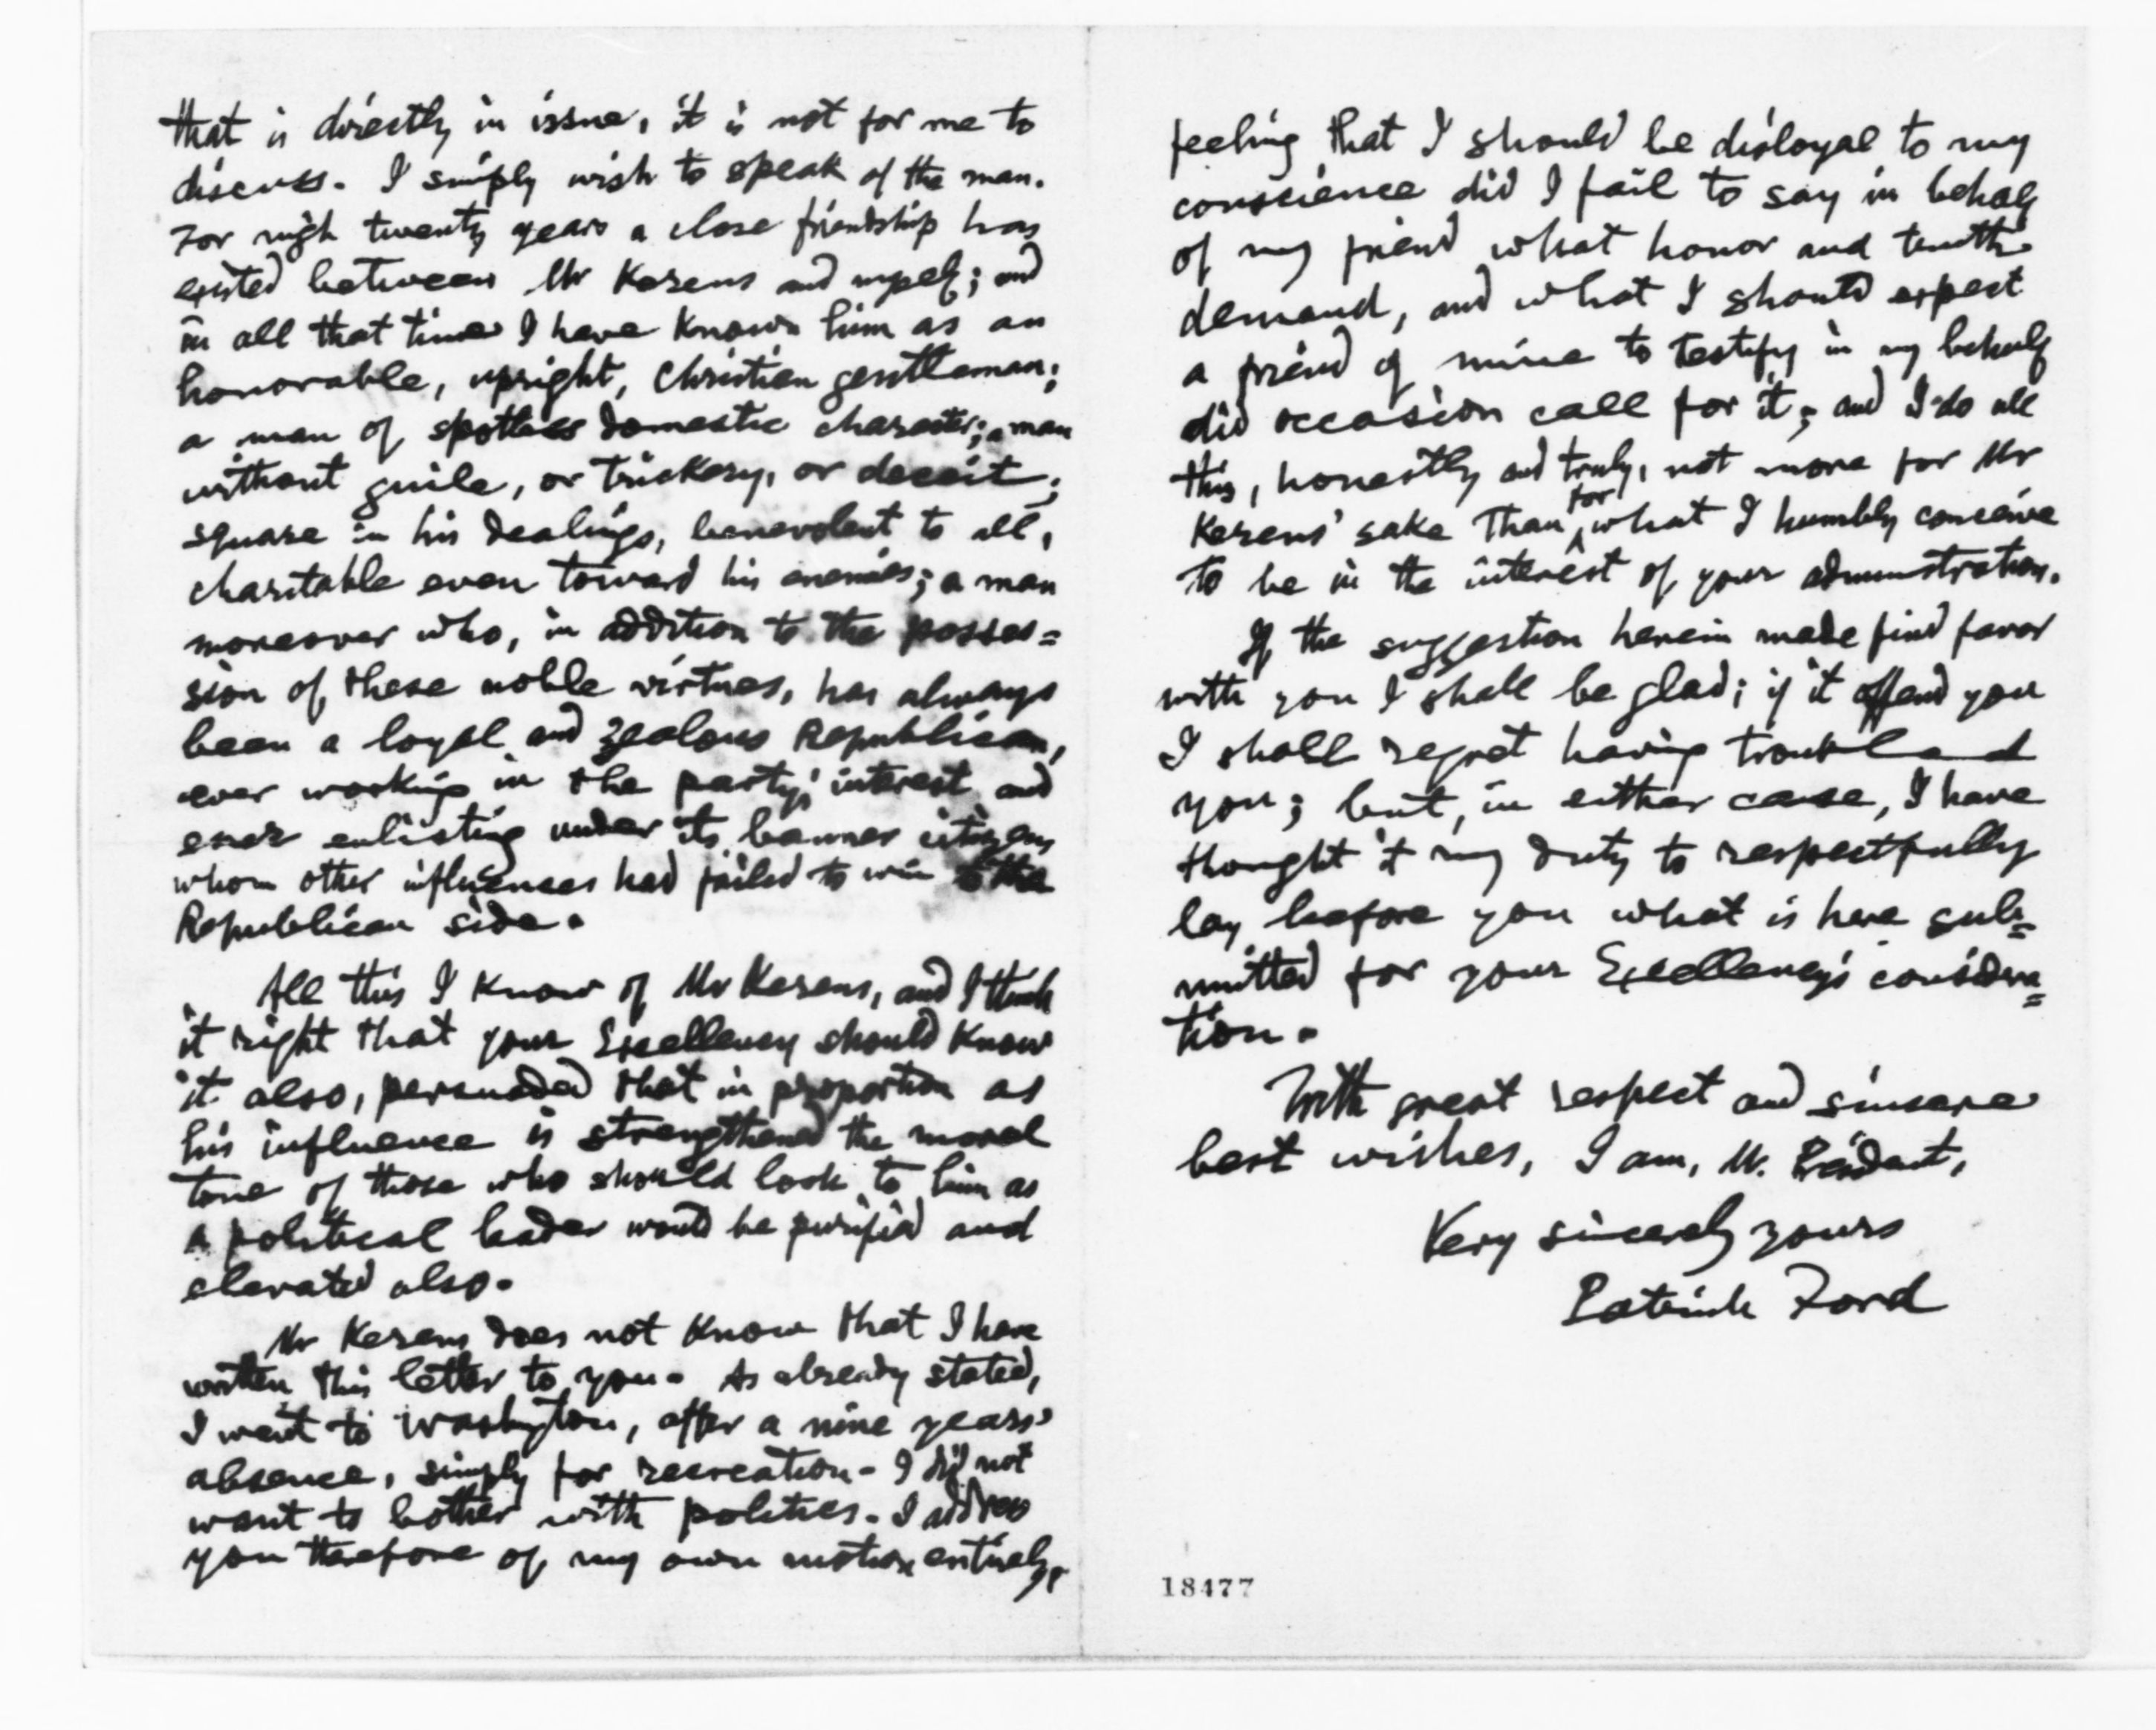 that is directly in issue, it is not for me to
discuss. I simply wish to speak of the man.
For nigh twenty years a close friendship has
existed between Mr Kerens and myself; and
in all that time I have known him as an
honorable, upright, Christian gentleman;
a man of spotless domestic character; a man
without guile, or trickery, or deceit;
square in his dealings, benevolent to all,
charitable even toward his enemies; a man
moreover who, in addition to the posses=
sion of these noble virtues, has always
been a loyal and zealous Republican,
ever working in the party's interest and
ever enlisting under its banner citizens
whom other influences had failed to win to the
Republican side.
All this I know of Mr Kerens, and I think
it right that your Excellency should know
it also, persuaded that in proportion as
his influence is strengthened the moral
tone of those who should look to him as
a political leader would be purified and
elevated also.
Mr Kerens does not know that I have
written this letter to you. As already stated,
I went to Washington, after a nine years'
absence, simply for recreation. I did not
want to bother with politics. I address
you therefore of my own motion entirely,
feeling that I should be disloyal to my
conscience did I fail to say in behalf
of my friend what honor and truth
demand, and what I should expect
a friend of mine to testify in my behalf
did occasion call for it; and I do all
this, honestly and truly, not more for Mr
Kerens' sake than for what I humbly conceive
to be in the interest of your administration.
If the suggestion herein made find favor
with you I shall be glad; if it offend you
I shall regret having troubled
you; but, in either case, I have
thought it my duty to respectfully
lay before you what is here sub=
mitted for your Excellency's considera=
tion.
With great respect and sincere
best wishes, I am, Mr. President,
Very sincerely yours
Patrick Ford
18477